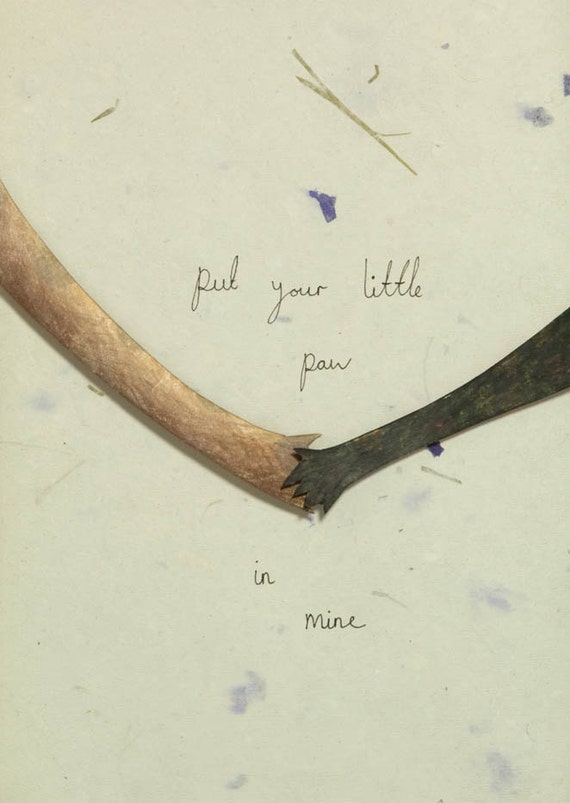 put your little
paw
in
mine